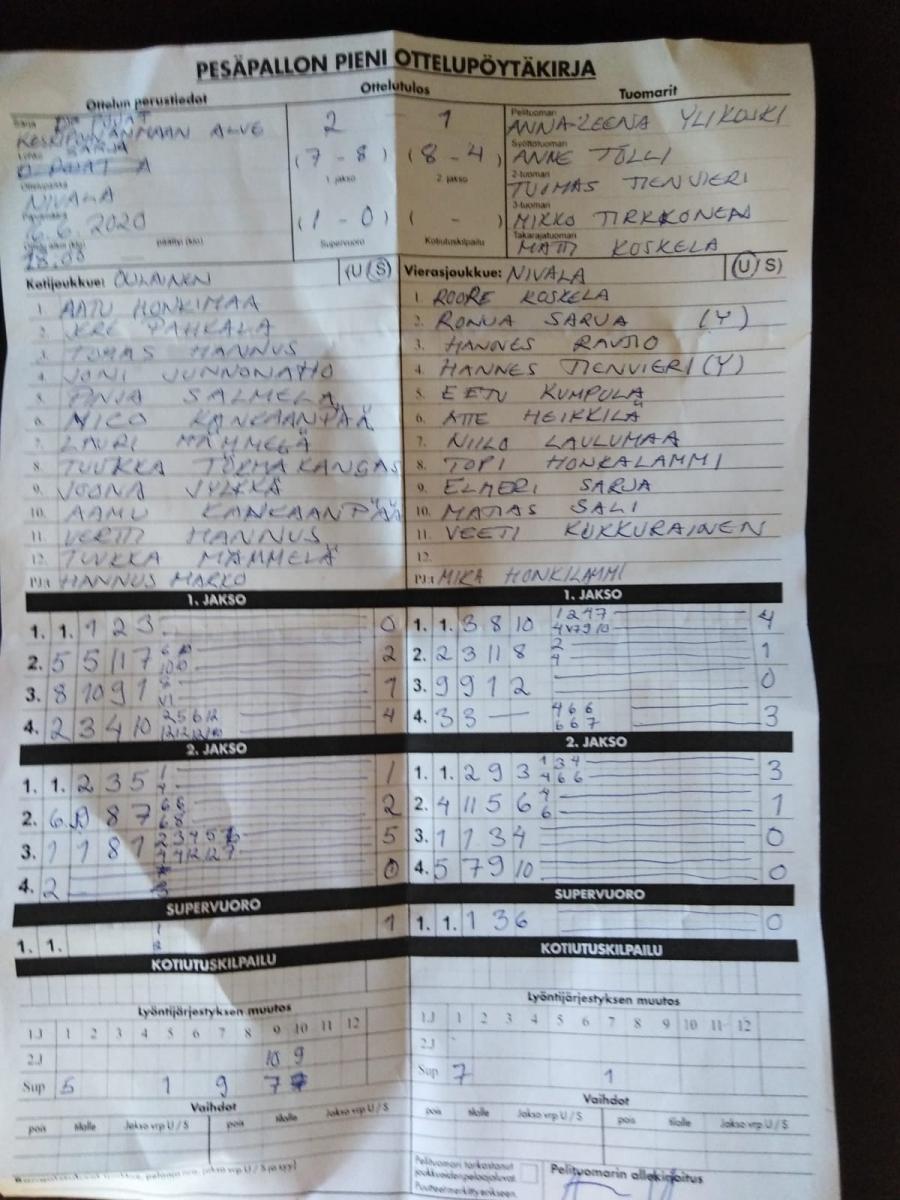 PESÄPALLON PIENI OTTELUPÖYTÄKIRJA
Ottelun perustiedot Ottelutulos Tuomarit
Sarja
KESKIPOHJANMAAN ALUE
SARJA
NIVALA
6.6. 2020
18.00 päättyi (klo)
2 - 1
(7 - 8) (8 - 4)
1. jakso 2. jakso
(1 - 0) ( - )
Supervuoro Kotiutuskilpailu
Pelituomari
ANNA-LEENA YLIKOSKI
Syöttötuomari
ANNE TÖLLI
2-tuomari
TUOMAS TIENVIERI
3-tuomari
MIKKO TIRKKONEN
Takarajatuomari
MATTI KOSKELA
Kotijoukkue: OULAINEN (U/S)
1. AATU HONKIMAA
2. JERE PAHKALA
3. TOMAS HANNUS
4. JONI JUNNONAHO
5. PINJA SALMELA
6. MICO KANKAANPÄÄ
7. LAURI MÄMMELÄ
8. TUUKKA TÖRMÄKANGAS
9. JOONA JYLKKÄ
10. AAMU KANKAANPÄÄ
11. VERTTI HANNUS
12. TUUKKA MÄMMELÄ
PJ: HANNUS MARKO
Vierasjoukkue: NIVALA (U/S)
1. ROORE KOSKELA
2. RONJA SARJA (Y)
3. HANNES RAUTIO
4. HANNES TIENVIERI (Y)
5. EETU KUMPULA
6. ATTE HEIKKILÄ
7. NIILO LAULUMAA
8. TOPI HONKALAMMI
9. ELMERI SARJA
10. MATIAS SALI
11. VEETI KUKKURAINEN
12.
PJ: MIKA HONKILAMMI
1. JAKSO
1. 1. 1 2 3 0
2. 5 5 11 7 2
3. 8 10 9 1 1
4. 2 3 4 10 2 5 6 12 4
2. JAKSO
1. 1. 2 3 5 1 1
2. 6 8 7 2
3. 1 1 8 1 5
4. 2 0
SUPERVUORO
1. 1. 1
KOTIUTUSKILPAILU
1. JAKSO
1. 1. 3 8 10 1 2 4 7 4
2. 2 3 11 8 2 1
4
3. 9 9 1 2 0
4. 3 3 — 4 6 6 3
6 6 7
2. JAKSO
1. 1. 2 9 3 1 3 4 3
4 6 6
2. 4 11 5 6 4 1
6
3. 1 1 3 4 0
4. 5 7 9 10 0
SUPERVUORO
1. 1. 1 3 6 0
KOTIUTUSKILPAILU
Lyöntijärjestyksen muutos
1.J 1 2 3 4 5 6 7 8 9 10 11 12
2.J 10 9
Sup 5 1 9 7
Vaihdot
pois tilalle Jakso vrp U / S pois tilalle Jakso vrp U / S
Lyöntijärjestyksen muutos
1.J 1 2 3 4 5 6 7 8 9 10 11 12
2.J
Sup 7 1
Vaihdot
pois tilalle Jakso vrp U / S pois tilalle Jakso vrp U / S
Pelituomari tarkastanut
joukkueiden pelaajaluvat.
Puutteet merkitty erikseen.
Pelituomarin allekirjoitus